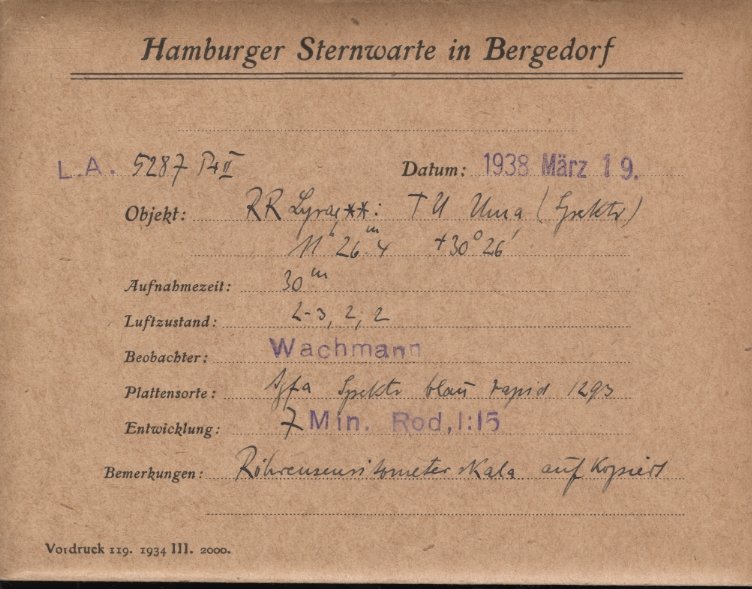 Hamburger Sternwarte in Bergedorf
L.A. 5287 Pr II Datum: 1938 März 19.
Objekt: RR Lyrae **: TU Uma (Spektr)
11h 26m.4 +30° 26'
Aufnahmezeit: 30m
Luftzustand: 2-3, 2, 2
Beobachter: Wachmann
Plattensorte: Agfa Spektr blau rapid 1293
Entwicklung: 7 Min. Rod, 1:15
Bemerkungen: Röhrensensitometerskala aufkopiert
Vordruck 119. 1934 III. 2000.